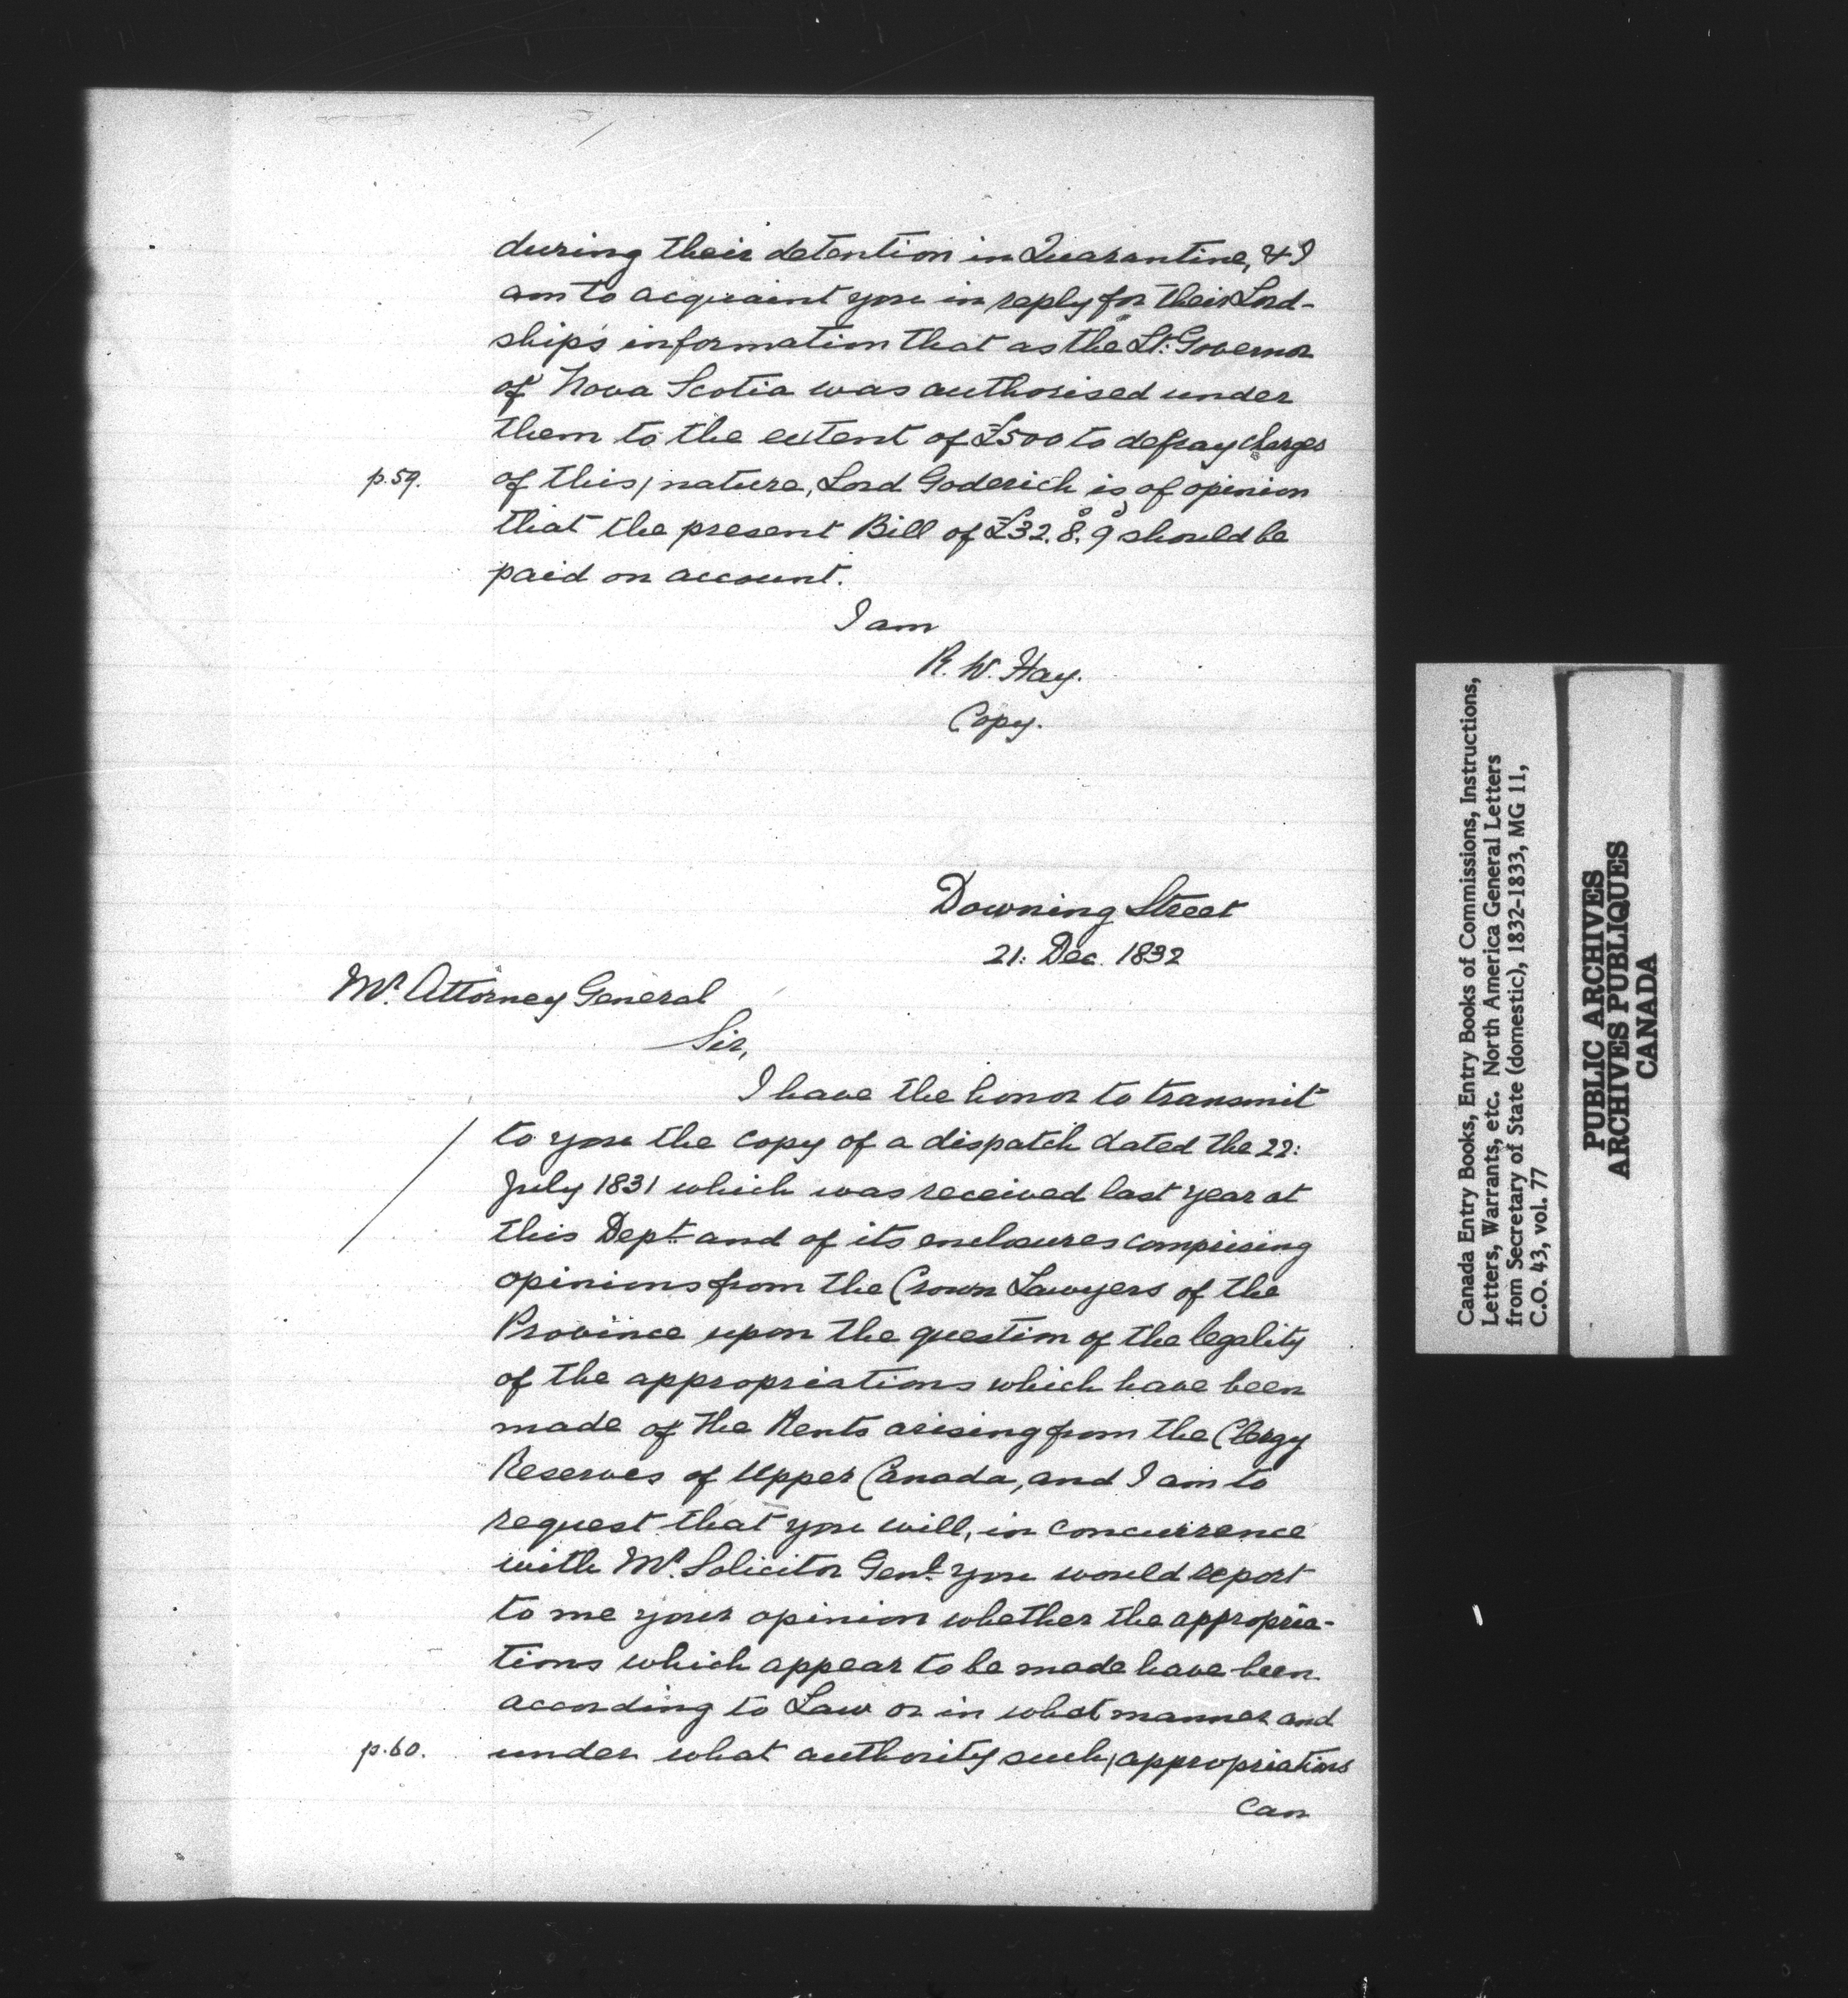 during their detention in Quarantine, & I
am to acquaint you in reply for their Lord-
ships information that as the Lt: Governor
of Nova Scotia was authorised under
them to the extent of £500 to defray charges
p.59. of this/ nature, Lord Goderich is of opinion
that the present Bill of £32. 8.s 9d should be
paid on account.
I am
R. W. Hay.
Copy.
Downing Street
21: Dec. 1832
Mr. Attorney General
Sir,
I have the honor to transmit
to you the copy of a dispatch dated the 22:
July 1831 which was received last year at
this Dept. and of its enclosures comprising
opinions from the Crown Lawyers of the
Province upon the question of the legality
of the appropriations which have been
made of the Rents arising from the Clergy
Reserves of Upper Canada, and I am to
request that you will, in concurrence
with Mr. Solicitor Genl. you would report
to me your opinion whether the appropria-
tions which appear to be made have been
according to Law or in what manner and
p.60. under what authority such/ appropriations
can
Canada Entry Books, Entry Books of Commissions, Instructions,
Letters, Warrants, etc. North America General Letters
from Secretary of State (domestic), 1832-1833, MG 11,
C.O. 43, vol. 77
PUBLIC ARCHIVES
ARCHIVES PUBLIQUES
CANADA